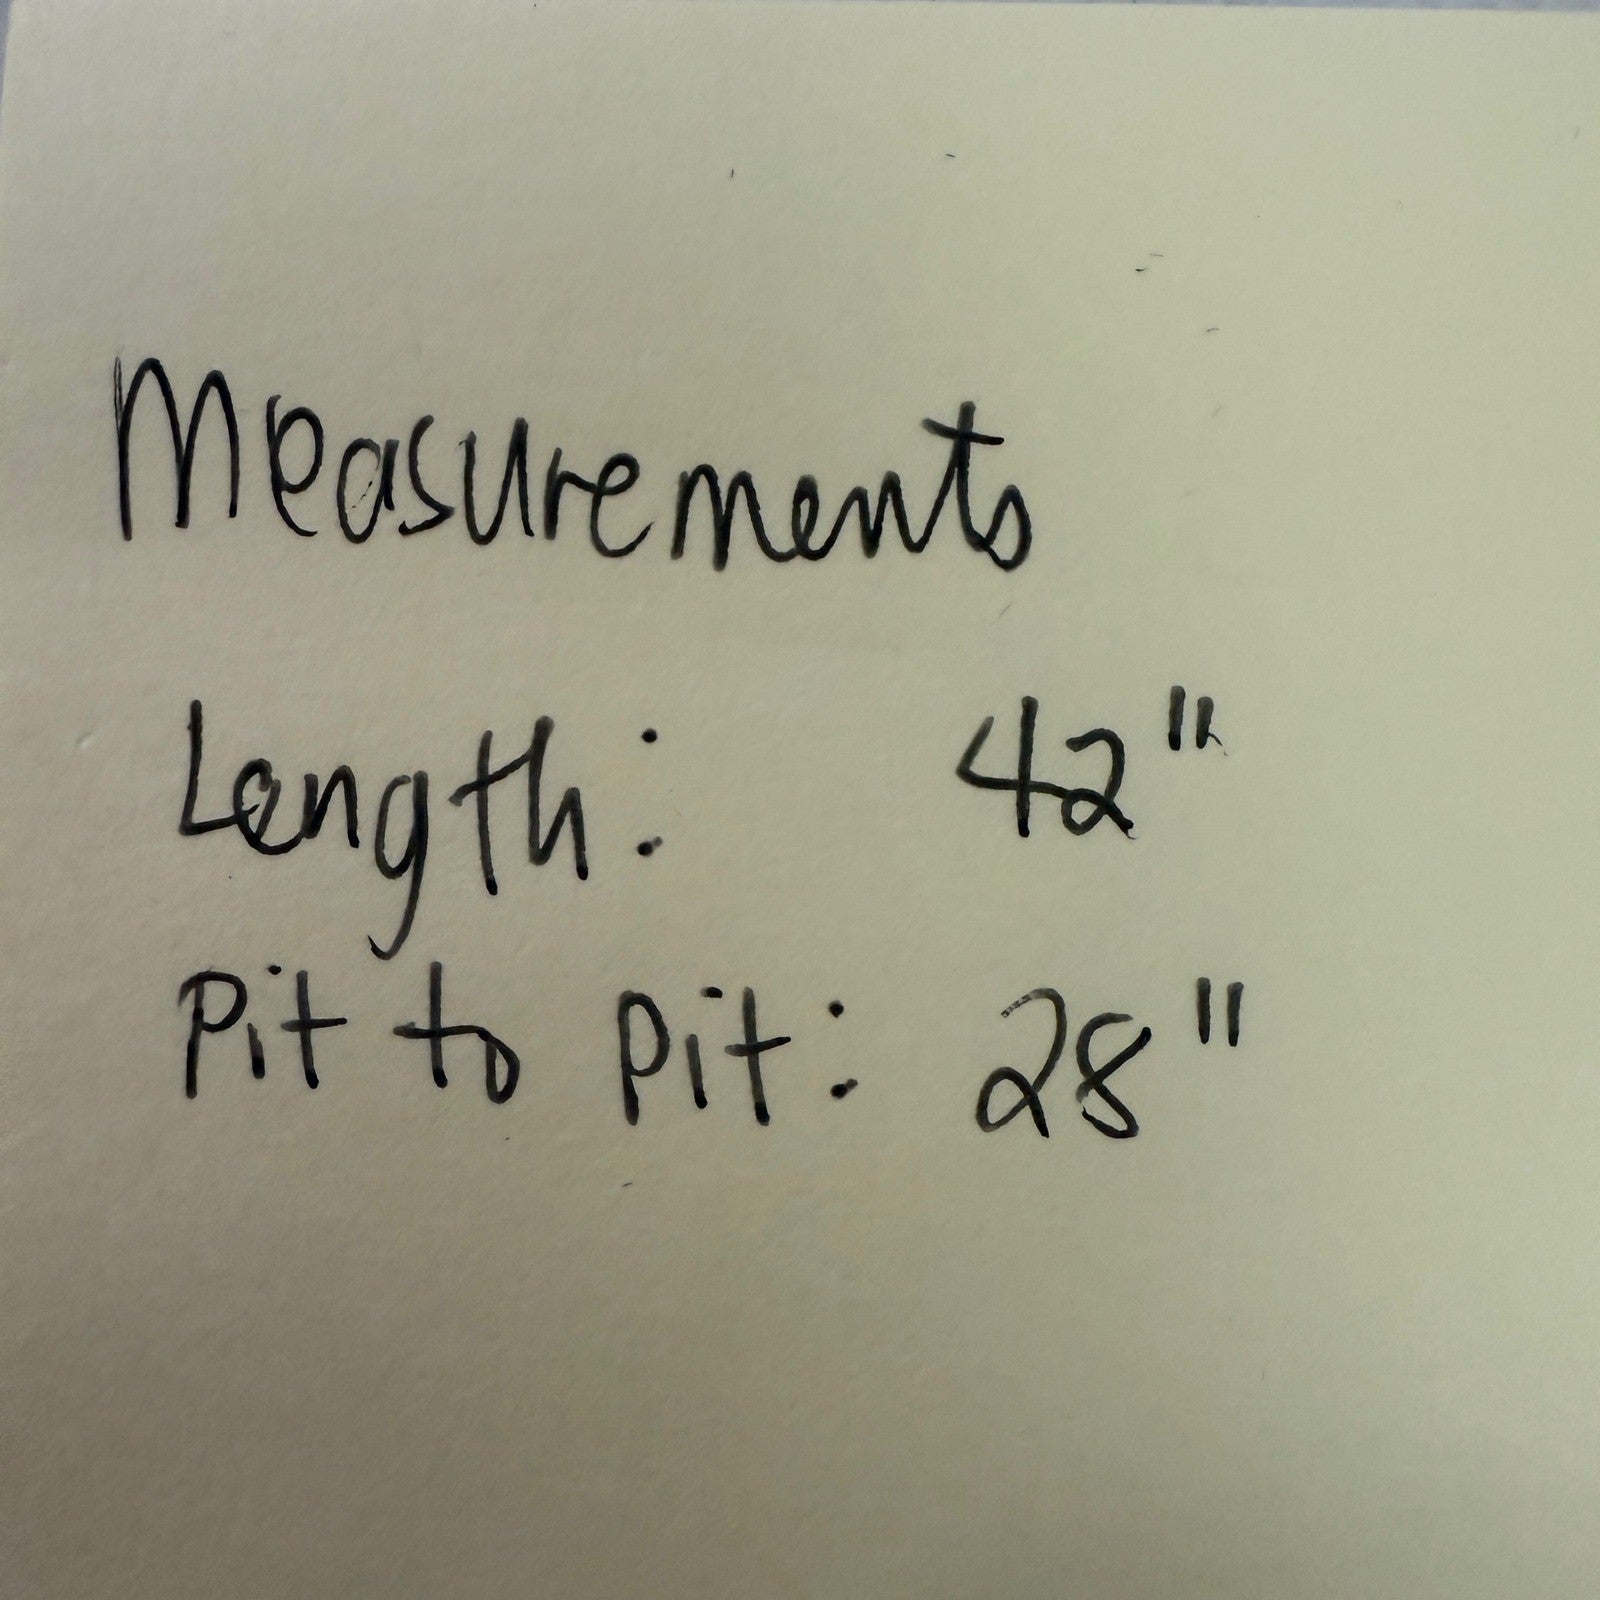 Measurements
Length: 42"
Pit to Pit: 28"